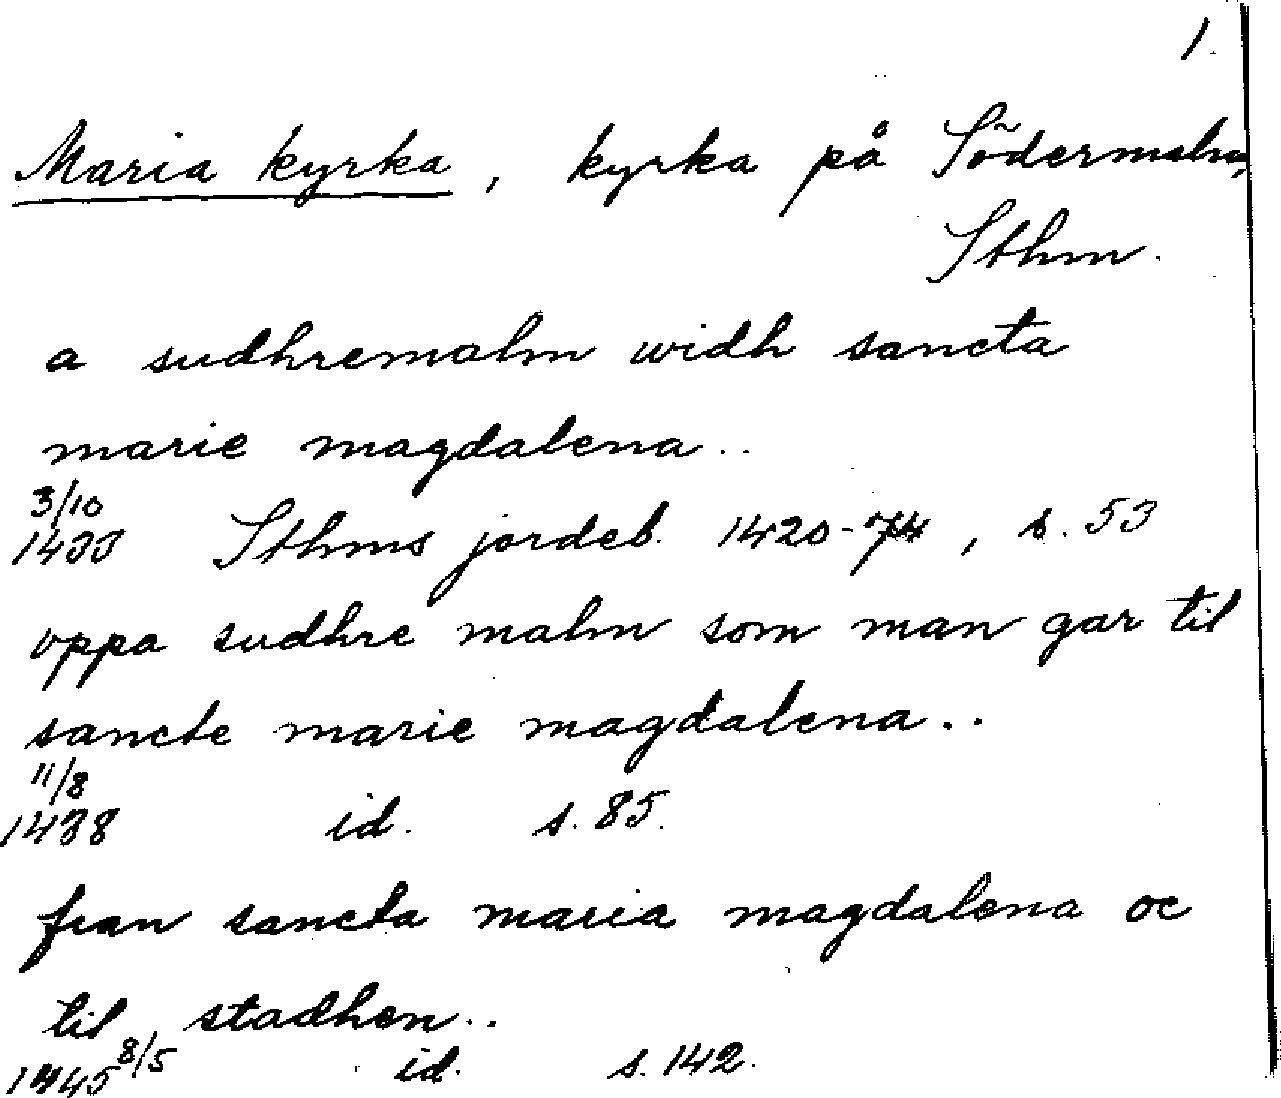 1.
Maria kyrka, kyrka på Södermalm,
Sthm.
a sudhremalm widh sancta
marie magdalena..
3/10
1433 Sthms jordeb. 1420-74, s. 53
oppa sudhre malm som man gar til
sancte marie magdalena..
11/8
1438 id. s. 85.
fran sancta maria magdalena oc
til stadhen..
1445 8/5 id. s. 142.